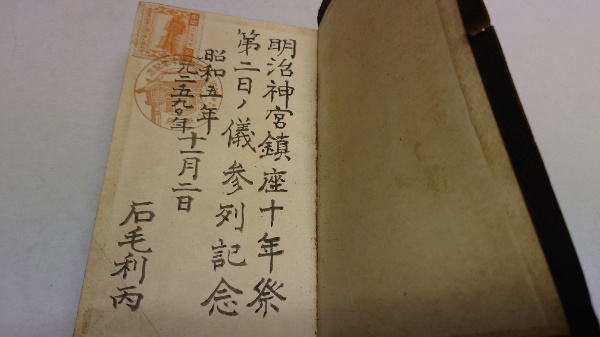 明治神宮鎮座十年祭
第二日ノ儀参列記念
昭和五年
十一月二日
石毛利丙